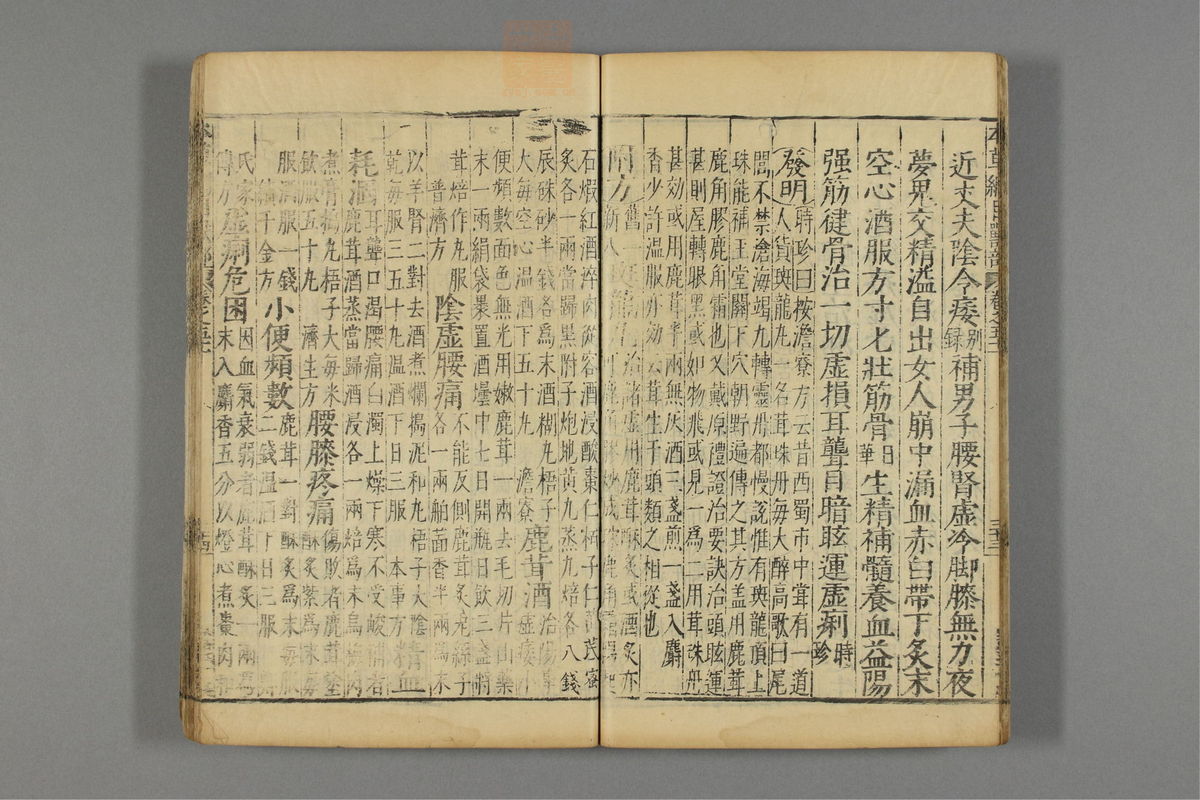 近丈夫陰令痿别録補男子腰腎虚冷脚膝無力夜
夢鬼交精溢自出女人崩中漏血赤白帶下炙末
空心酒服方寸匕壯筋骨日華生精補髓養血益陽
强筋健骨治一切虚損耳聾目暗眩運虚痢時珍
發明時珍曰按澹寮方云昔西蜀市中嘗有一道
人貨斑龍丸一名茸珠丹每大醉高歌曰尾
閭不禁滄海竭九轉靈丹都慢説惟有斑龍頂上
珠能補玉堂關下穴朝野遍傳之其方盖用鹿茸
鹿角膠鹿角霜也又戴原禮證治要訣治頭眩運
甚則屋轉眼黑或如物飛或見一爲二用茸珠丹
甚効或用鹿茸半兩無灰酒三盞煎一盞入麝
香少許温服亦効云茸生于頭類之相從也
附方舊一新八 治諸虚用鹿茸酥炙或酒炙亦
石煆紅酒淬肉從容酒浸酸棗仁栢子仁黄芪蜜
炙各一兩當歸黑附子炮地黄九蒸九焙各八錢
辰硃砂半錢各爲末酒糊丸梧子
大每空心温酒下五十丸 澹寮 鹿茸酒治陽事
虚痿小
便頻數面色無光用嫩鹿茸一兩去毛切片山藥
末一兩絹袋裹置酒壜中七日開瓶日飲三盞將
茸焙作丸服
普濟方 陰虚腰痛不能反側鹿茸炙兔絲子
各一兩舶茴香半兩爲末
以羊腎二對去酒煮爛搗泥和丸梧子大陰
乾每服三五十丸温酒下日三服 本事方 精血
耗涸耳聾口渴腰痛白濁上燥下寒不受峻補者
鹿茸酒蒸當歸酒浸各一兩焙爲末烏梅肉
煮膏搗丸梧子大每米
飲服五十丸 濟生方 腰膝疼痛傷敗者鹿茸
酥炙紫爲末每
服酒服一錢 小便頻數鹿茸一對酥炙爲末每服
二錢温酒下日三服
千金方
氏家
傳方 虚痢危困因血氣衰弱者鹿茸酥炙一兩爲
末入麝香五分以燈心煮棗肉和